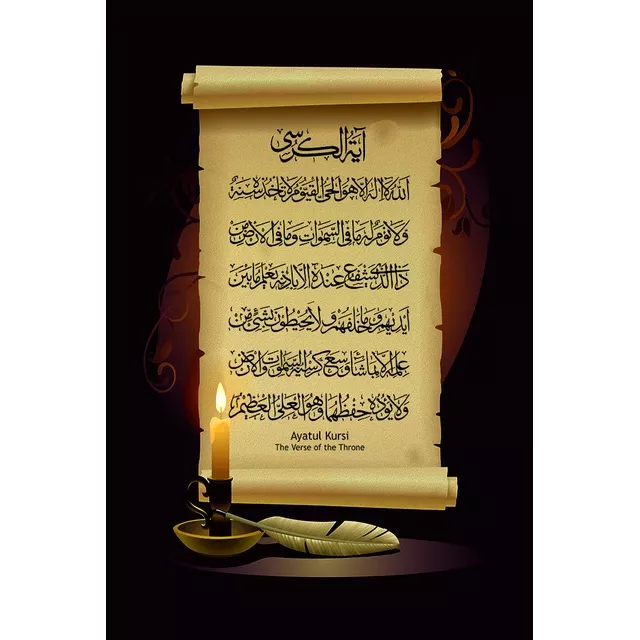 آية الكرسي
الله لا اله الا هو الحي القيوم لا تأخذه سنة
ولا نوم له ما في السموات وما في الأرض من
ذا الذي يشفع عنده الا باذنه يعلم ما بين
ايديهم وما خلفهم ولا يحيطون بشئ من
علمه الا بما شاء وسع كرسيه السموات والارض
ولا يؤده حفظهما وهو العلي العظيم
Ayatul Kursi
The Verse of the Throne